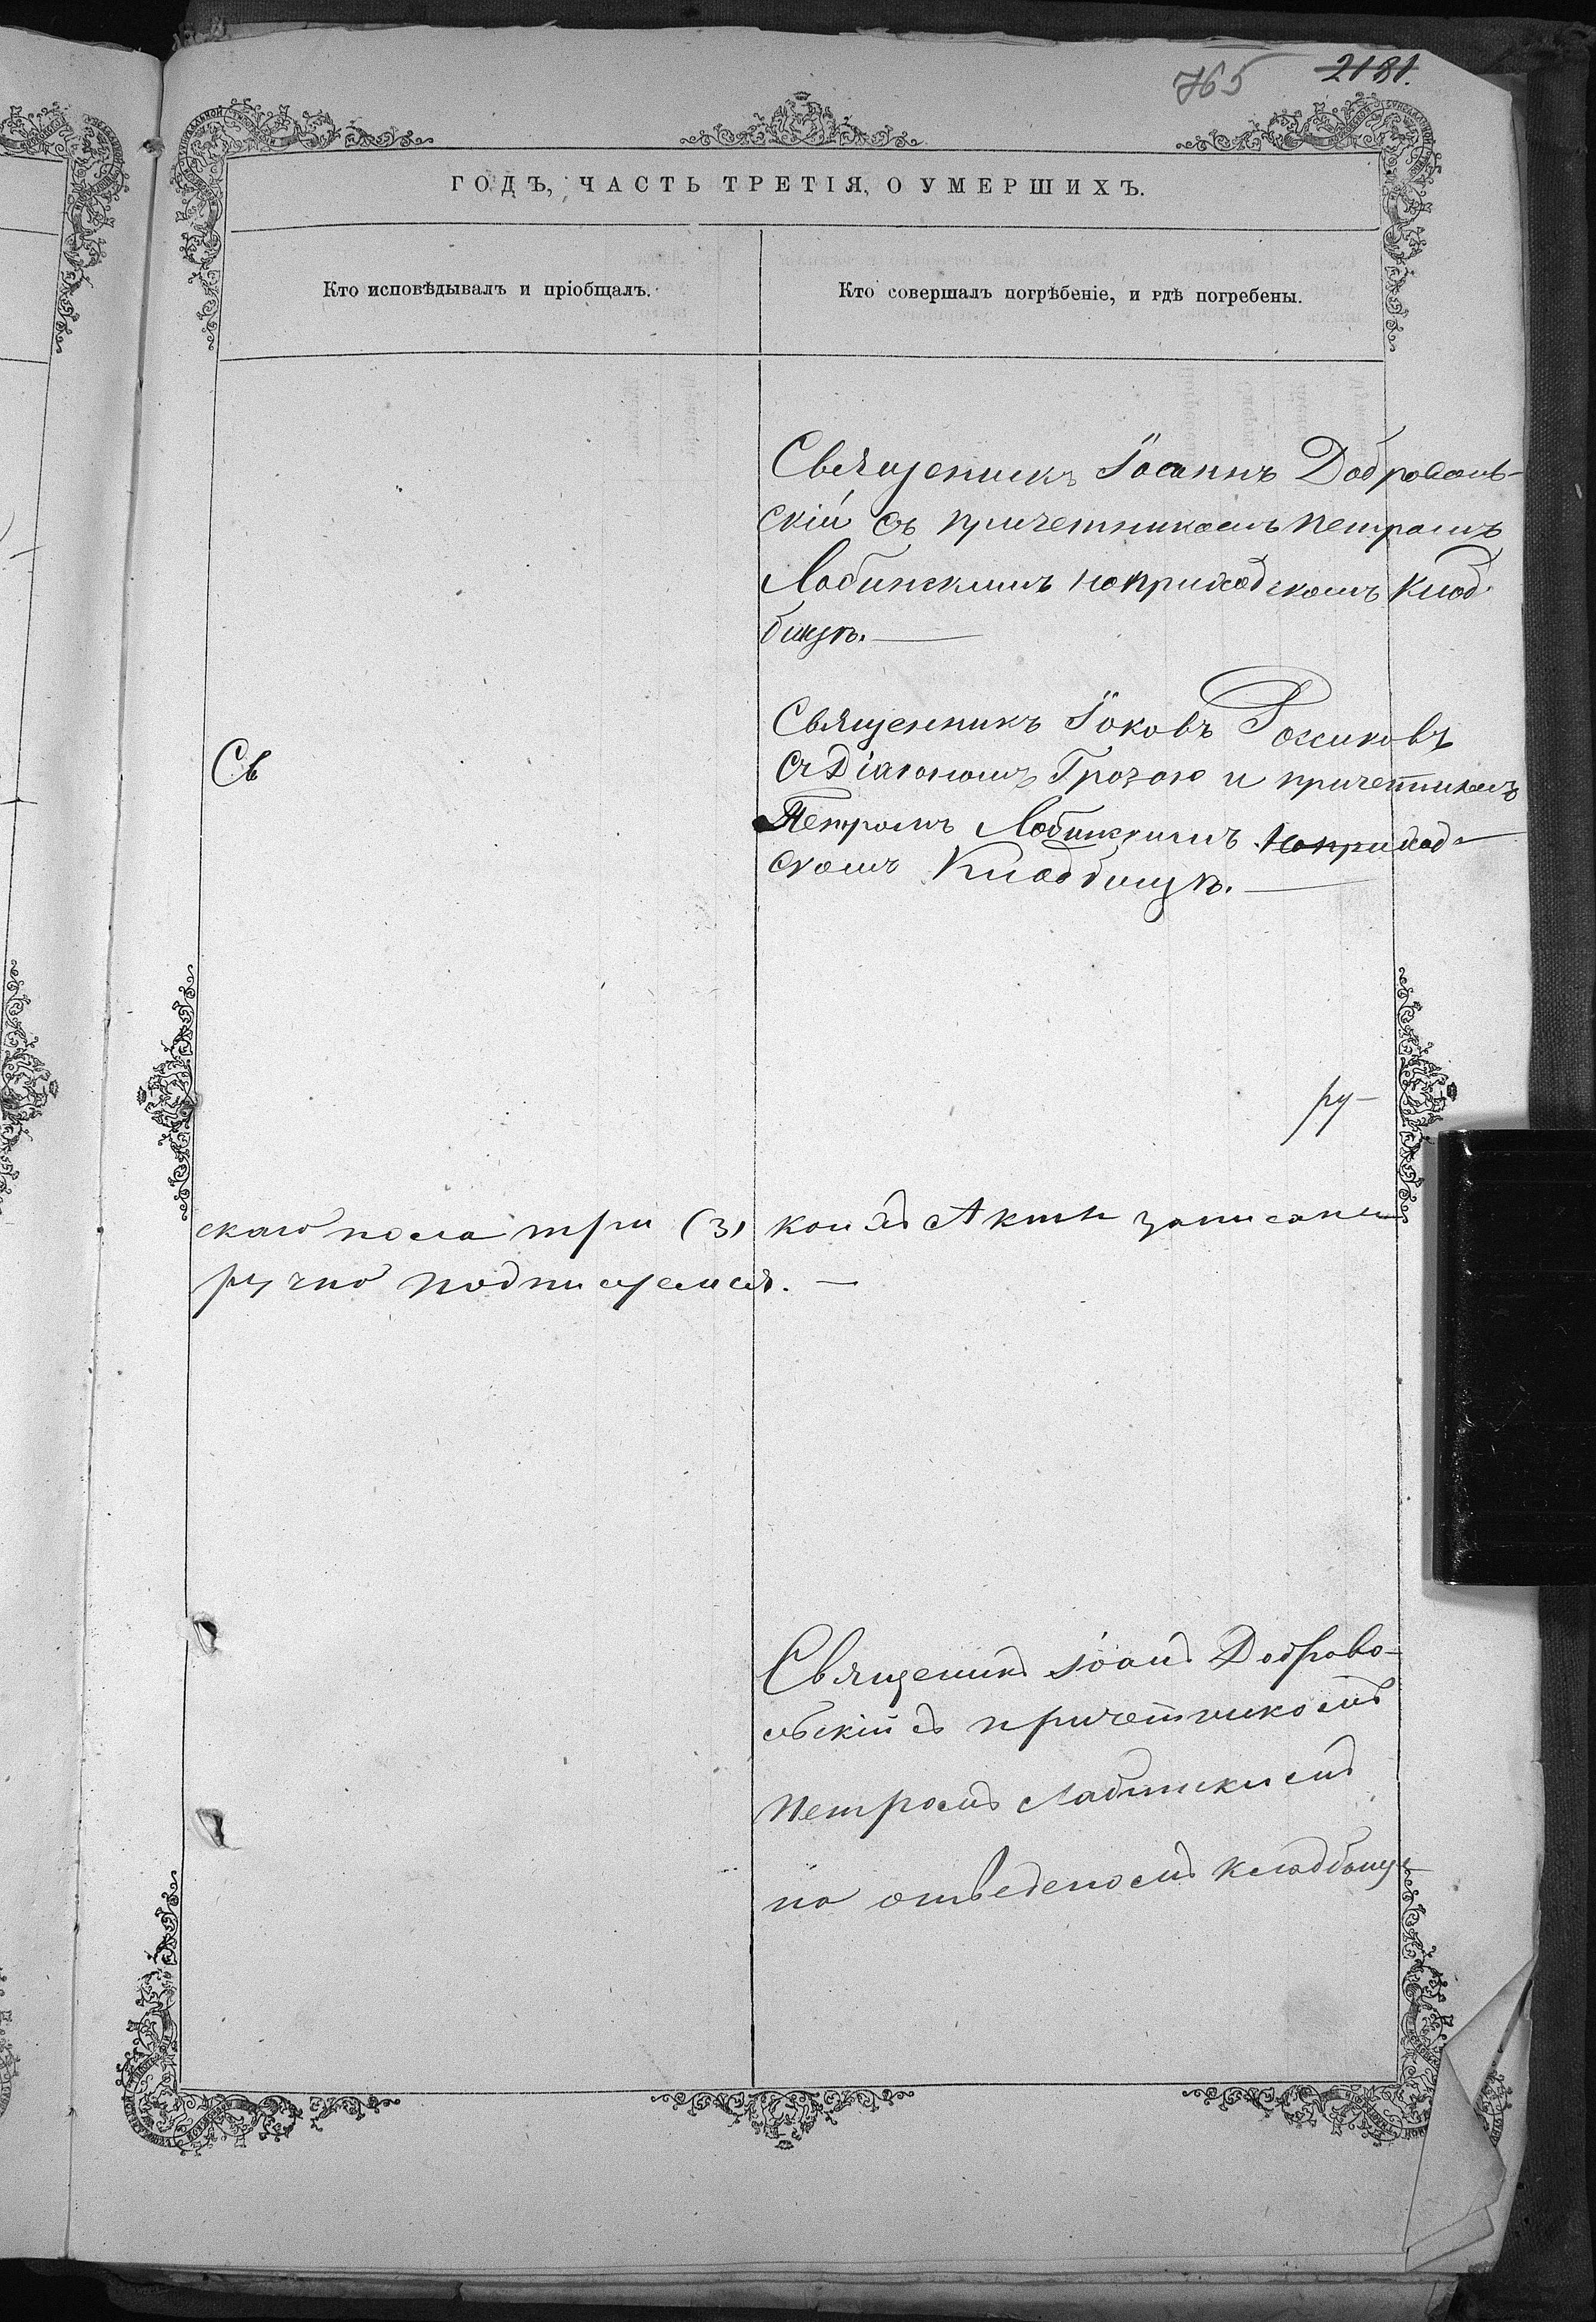 765 2181.
ГОДЪ, ЧАСТЬ ТРЕТІЯ, О УМЕРШИХЪ.
Кто исповѣдывалъ и пріобщалъ.
Кто совершалъ погрѣбеніе, и гдѣ погребены.
Священикъ Іоаннъ Доброволь-
скій съ причетникомъ Петромъ
Лобинскимъ на приходскомъ клад
бищѣ.
Св
Священникъ Іаковъ
съ Діакономъ Грозою и причетникомъ
Петромъ Лобинскимъ на приход-
скомъ Кладбищѣ.
ру-
скаго пола три (3) коихъ Акты записаны
ручно подписуемся.
Священикъ Іоанъ Доброво-
льскій съ причетникомъ
Петромъ Лабинскимъ
на отведеномъ кладбищѣ